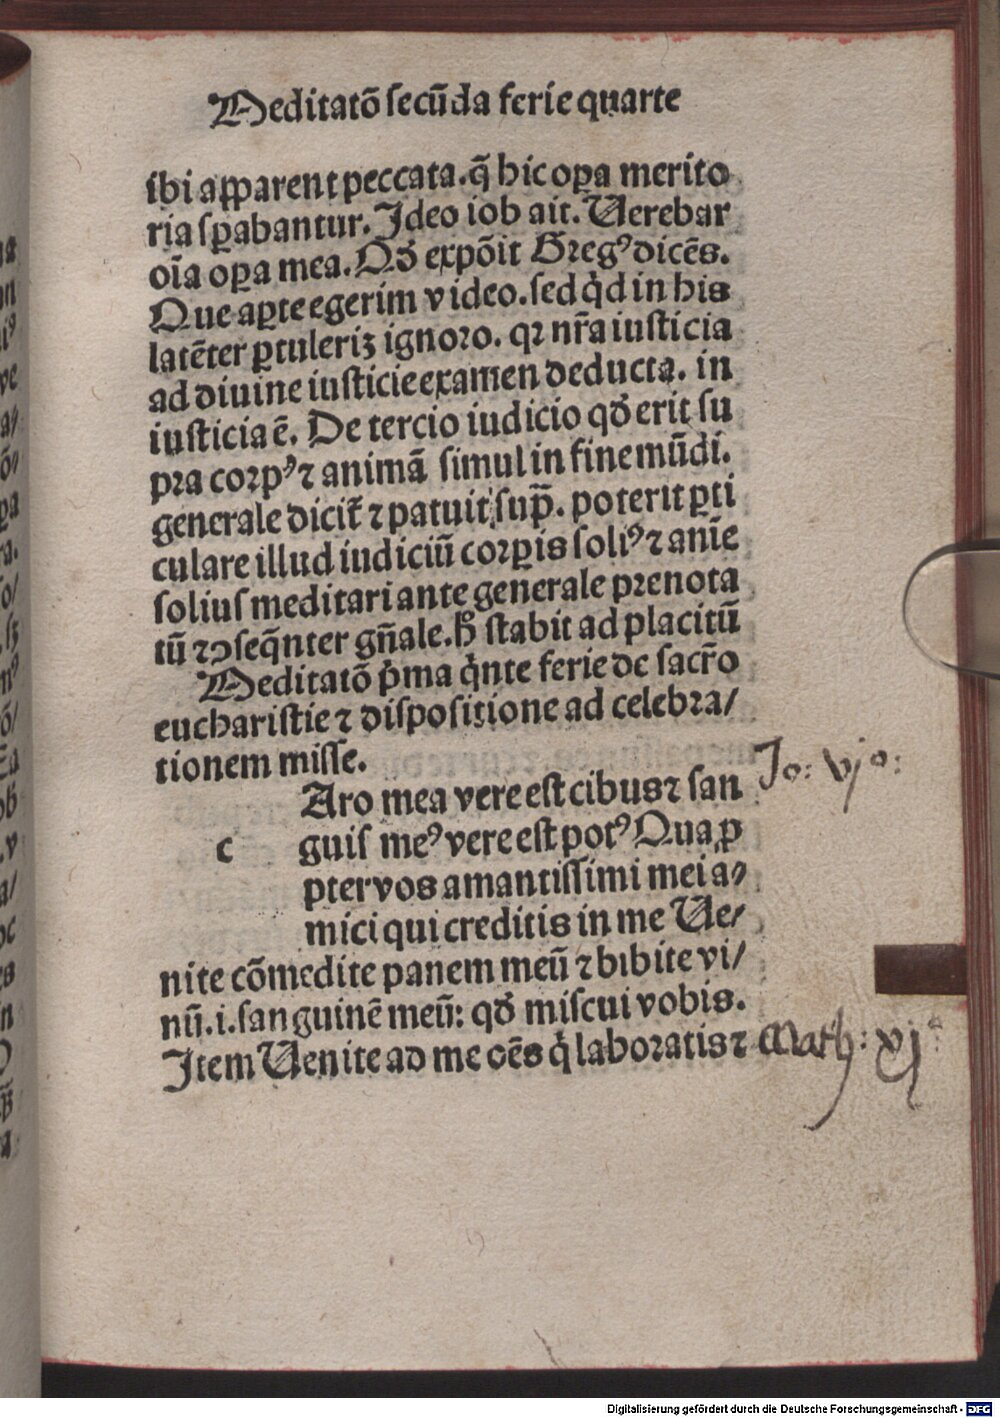 Meditatō secūda ferie quarte
ibi apparent peccata. q̄ hic oꝑa merito
ria sꝑabantur. Ideo iob ait. Uerebar
oīa oꝑa mea. Qđ expōit Gregꝰ dicēs.
Que aꝑte egerim video. sed qͥd in his
latēter ꝑtuleriꝫ ignoro. qꝛ nr̄a iusticia
ad diuine iusticie examen deducta. in
iusticia ē. De tercio iudicio qđ erit su
pra corpꝰ ⁊ animā simul in fine mūdi.
generale dicit̄ ⁊ patuit sup̄. poterit ꝑti
culare illud iudiciū corꝑis soliꝰ ⁊ anīe
solius meditari ante generale prenota
tū ⁊ ꝯseq̄nter gn̄ale. H̄ stabit ad placitū
Meditatō pͥma qͥnte ferie de sacr̄o
eucharistie ⁊ dispositione ad celebra/
tionem misse.
Aro mea vere est cibus ⁊ san
Jo: vjo:
c
guis meꝰ vere est potꝰ Qua ꝓ
pter vos amantissimi mei a/
mici qui creditis in me Ue/
nite cōmedite panem meū ⁊ bibite vi/
nū. i. sanguinē meū: qđ miscui vobis.
Item Uenite ad me oēs qͥ laboratis ⁊
Math: xj
Digitalisierung gefördert durch die Deutsche Forschungsgemeinschaft - DFG